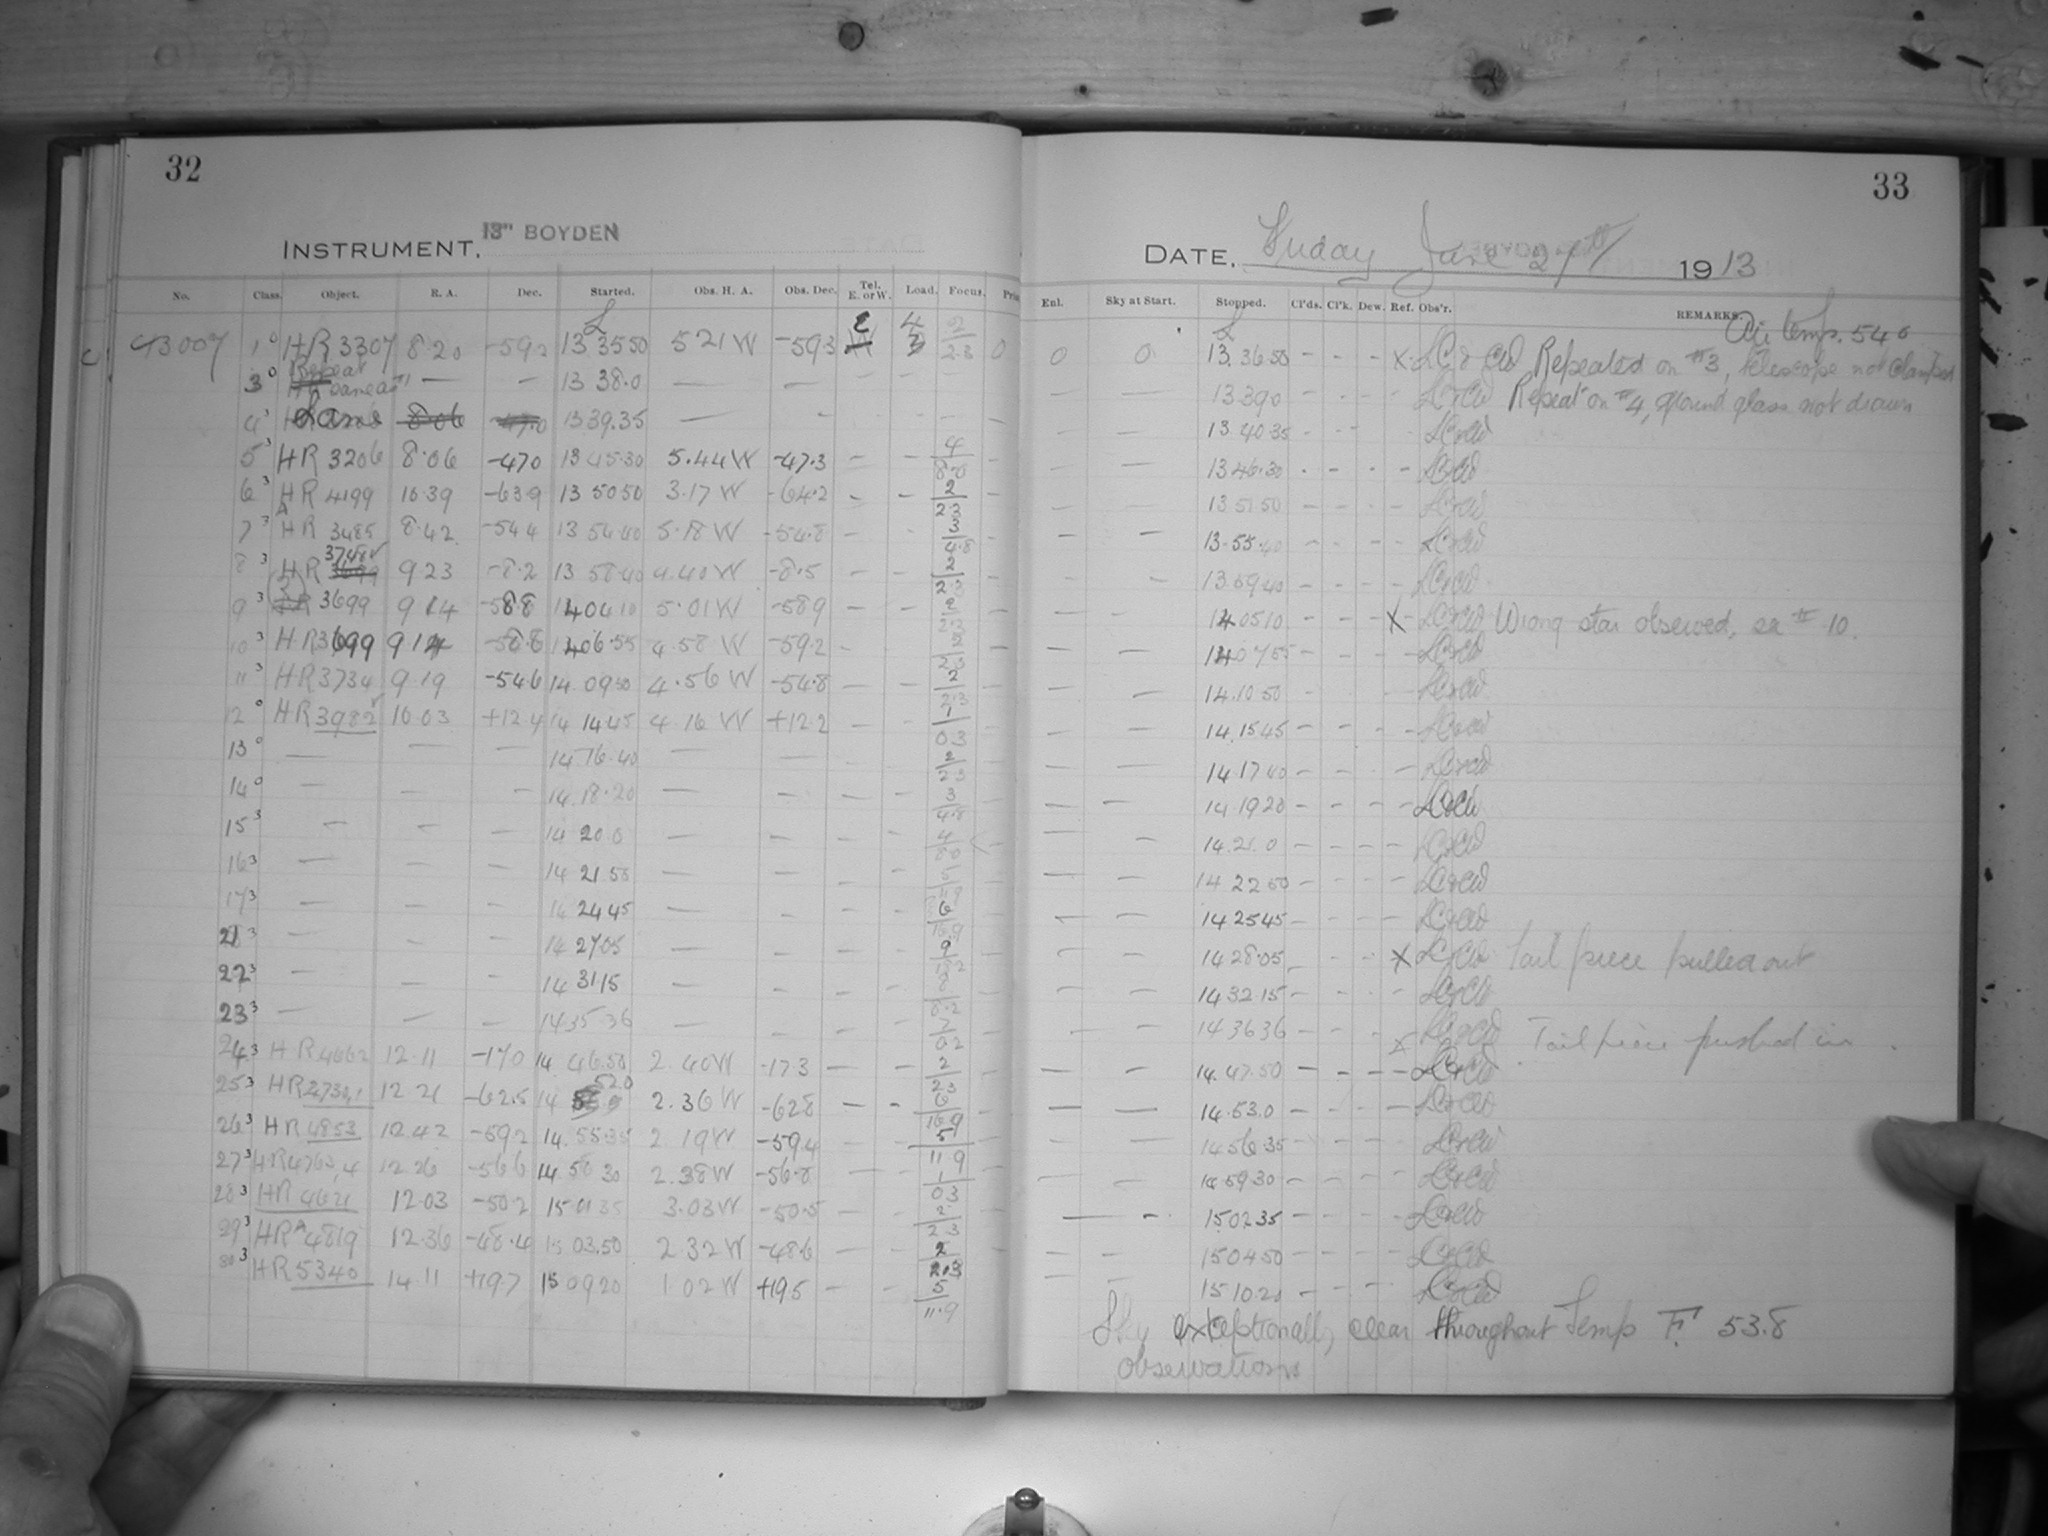 32
INSTRUMENT. 13" BOYDEN
No. Class. Object. R. A. Dec. Started. Obs. H. A. Obs. Dec. Tel. E. or W. Load. Focus.
1 0 HR 3307 8.20 -59.2 13 35 50 5 21 W -59.3 E 4 2 2.3 0
3 0 Repeat — — 13 38.0 — —
4 3 Same 8.06 -47.0 13 39.35 — —
5 3 HR 3206 8.06 -47.0 13 45.30 5.44 W -47.3 — — 4 8.0
6 3 HR 4199 10.39 -63.9 13 50 50 3.17 W -64.2 — — 2 2.3
7 3 HR 3485 8.42 -54.4 13 54.40 5.18 W -54.8 — 3 4.8
8 3 HR 3748 9 23 -8.2 13 58.40 4.40 W -8.5 — — 2 2.3
9 3 HR 3699 9 14 -58.8 14 04 10 5.01 W -58.9 — — 2 2.3
10 3 HR 3699 9 14 -58.8 14 06.55 4.58 W -59.2 — 2 2.3
11 3 HR 3734 9.19 -54.6 14 09 50 4.56 W -54.8 — — 2 2.3
12 0 HR 3982 10 03 +12.4 14 14 45 4.16 W +12.2 — 1 0 3
13 0 — — — 14 16.40 — — 2 2.3
14 0 — — — 14 18.20 — — 3 4.8
15 3 — — — 14 20 0 — — 4 8.0
16 3 — — — 14 21.50 — — 5 11.9
17 3 — — — 14 24 45 — — 6 16.9
21 3 — — — 14 27.05 — — 9
22 3 — — — 14 31 15 — — 8 8.2
23 3 — — — 14 35.36 — — 7 0 2
24 3 HR 4662 12.11 -17.0 14 46.50 2.40 W -17.3 — — 2 2.3
25 3 HR 4730,1 12 21 -62.5 14 52.0 2.36 W -62.8 — — 6 16.9
26 3 HR 4853 12.42 -59.2 14.55.35 2 19 W -59.4 — 5 11.9
27 3 HR 4763,4 12 26 -56.6 14.58 30 2.38 W -56.8 — 1 0 3
28 3 HR 4621 12.03 -50.2 15 01 35 3.03 W -50.5 — 2 2.3
29 3 HR 4819 12.36 -48.4 15 03.50 2 32 W -48.6 — 2 2.3
30 3 HR 5340 14.11 +19.7 15 09 20 1 02 W +19.5 — 5 11.9
33
DATE. Friday June 27th 1913
Enl. Sky at Start. Stopped. Cl'ds. Cl'k. Dew. Ref. Obs'r. REMARKS.
Air temp. 54.0
0 0 13.36 50 – – – X Repeated on #3, telescope not clamped
— — 13.39 0 – – – Repeat on #4, ground glass not drawn
— — 13 40 35 – – –
— — 13 46.30 – – –
— — 13 51 50 – – –
— — 13.55.40 – – –
— 13.59 40 – – – –
— — 14 05 10 – – – X Wrong star observed, see # 10.
— — 14 07 55 – – –
— — 14.10 50 – – –
— — 14.15 45 – – – –
— — 14.17 40 – – – –
— — 14 19 20 – – – –
— — 14.21.0 – – – –
— — 14 22 50 – – – –
— — 14 25 45 – – – –
— — 14 28.05 – – – X Tail piece pulled out
— — 14 32 15 – – –
— — 14 36 36 – – – X Tail piece pushed in
— — 14.47.50 – – – –
— — 14.53.0 – – – –
— — 14 56 35 – – – –
— — 14 59 30 – – – –
— — 15 02 35 – – – –
— — 15 04 50 – – – –
— — 15 10 20 – – – –
Sky exceptionally clear throughout Temp F. 53.8
observations